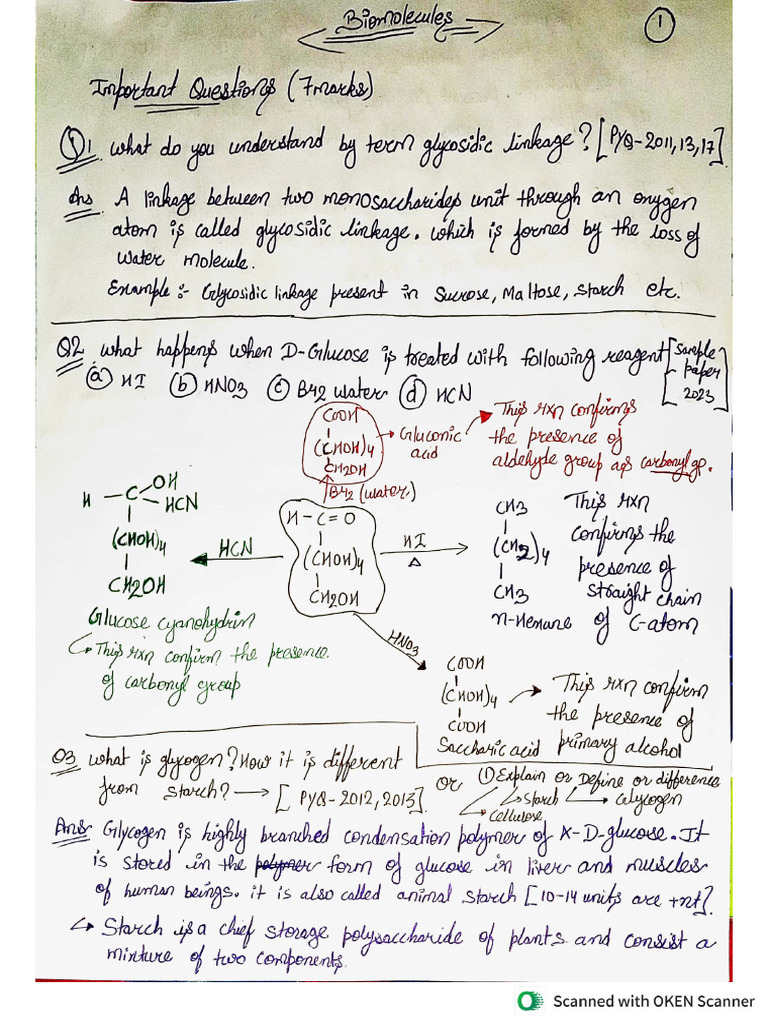 Biomolecules
1
Important Questions (7marks)
Q1 what do you understand by term glycosidic linkage? [PYQ-2011,13,17]
Ans A linkage between two monosaccharides unit through an oxygen
atom is called glycosidic linkage. which is formed by the loss of
water molecule.
Example :- Glycosidic linkage present in Sucrose, Maltose, starch etc.
Q2 what happens when D-Glucose is treated with following reagent [Sample
paper
2023]
(a) HI (b) HNO3 (c) Br2 water (d) HCN
COOH
(CHOH)4
CH2OH
→ Gluconic
acid
This rxn confirms
the presence of
aldehyde group as carbonyl gp.
Br2 (water)
H - C - OH
HCN
(CHOH)4
CH2OH
Glucose cyanohydrin
↳ This rxn confirm the presence.
of carbonyl group
HCN
H - C = O
(CHOH)4
CH2OH
HI
Δ
CH3
(CH2)4
CH3
n-Hexane
This rxn
confirms the
presence of
straight chain
of C-atom
HNO3
COOH
(CHOH)4
COOH
Saccharic acid
This rxn confirm
the presence of
primary alcohol
Q3 what is glycogen? How it is different
from starch? → [PYQ-2012,2013].
or (1) Explain or Define or difference
starch Glycogen
Cellulose
Ans Glycogen is highly branched condensation polymer of α-D-glucose. It
is stored in the polymer form of glucose in liver and muscles
of human beings. it is also called animal starch [10-14 units are +nt].
↳ Starch is a chief storage polysaccharide of plants and consist a
mixture of two components.
Scanned with OKEN Scanner